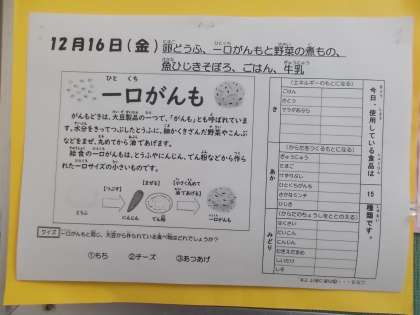 12月16日(金) 卵どうふ、一口がんもと野菜の煮もの、
魚ひじきそぼろ、ごはん、牛乳
ひと くち
一口がんも
がんもどきは、大豆製品の一つで、「がんも」とも呼ばれています。
水分をきってつぶしたとうふに、
などをまぜ、丸めてから油であげます。
給食の一口がんもは、とうふやにんじん、でん粉などから作られた
一口サイズの小さいものです。
【つぶす】
【まぜる】
とうふ
にんじん
でん粉
一口がんも
クイズ 一口がんもと同じ、大豆から作られている食べ物はどれでしょうか？
①もち ②チーズ ③あつあげ
今日、使用している食品は 15 種類です。
き
(エネルギーのもとになる)
ごはん
さとう
サラダあぶら
あか
(からだをつくるもとになる)
ぎゅうにゅう
たまご
ひとくちがんも
ひじき
みどり
(からだのちょうしをととのえる)
はくさい
だいこん
にんじん
しいたけ